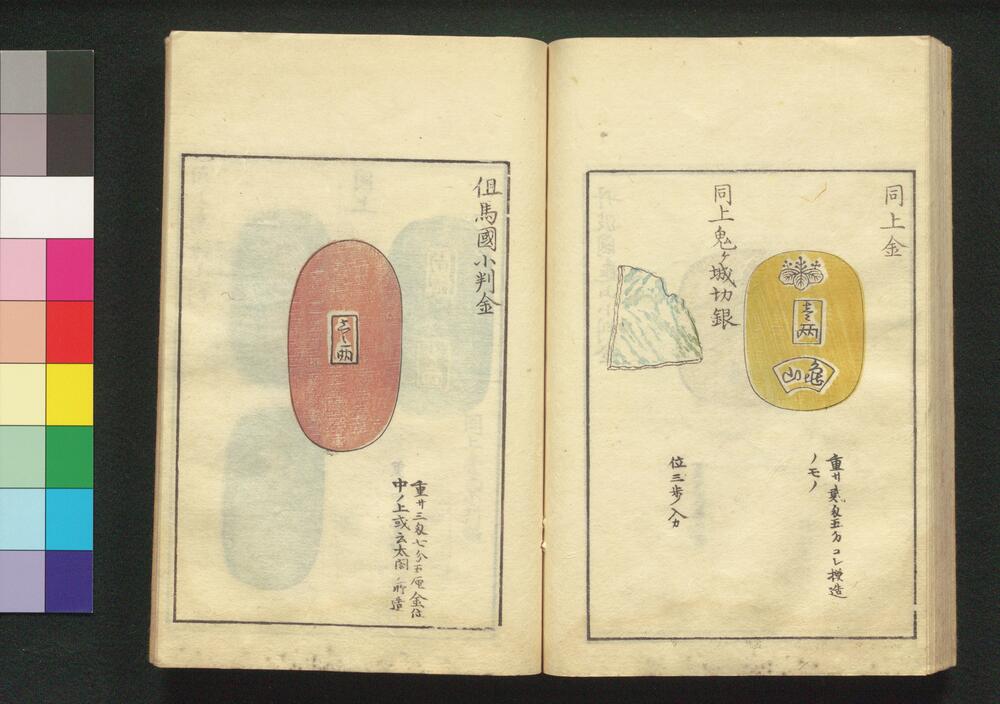 同上金
壱両
亀山
重廿弐匁五分コレ模造
ノモノ
同上鬼ヶ城切銀
位三歩入カ
但馬國小判金
壱両
重廿三匁七分五厘金位
中ノ上或云太閤ノ所造